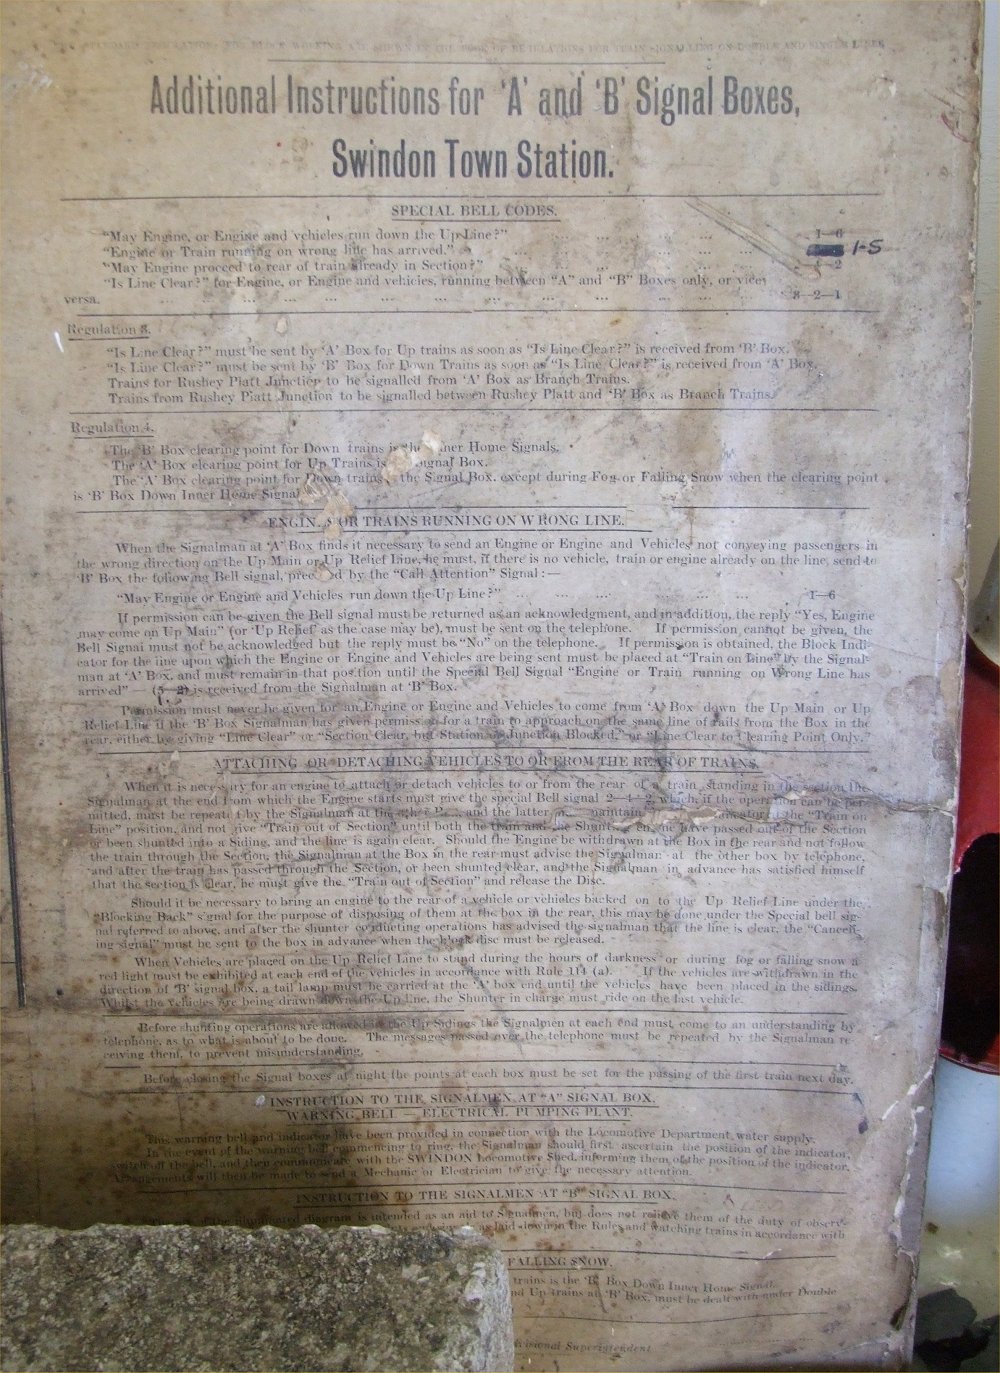 STANDARD REGULATIONS FOR BLOCK WORKING ARE SHEWN IN THE BOOK OF REGULATIONS FOR TRAIN SIGNALLING ON DOUBLE AND SINGLE LINES
Additional Instructions for 'A' and 'B' Signal Boxes,
Swindon Town Station.
SPECIAL BELL CODES.
"May Engine, or Engine and vehicles run down the Up Line?" ... 1—6
"Engine or Train running on wrong line has arrived." ... 1-5
"May Engine proceed to rear of train already in Section?" ... 2
"Is Line Clear?" for Engine, or Engine and vehicles, running between "A" and "B" Boxes only, or vice
versa. ... 3—2—1
Regulation 3.
"Is Line Clear?" must be sent by 'A' Box for Up trains as soon as "Is Line Clear?" is received from 'B' Box.
"Is Line Clear?" must be sent by 'B' Box for Down Trains as soon as "Is Line Clear?" is received from 'A' Box.
Trains for Rushey Platt Junction to be signalled from 'A' Box as Branch Trains.
Trains from Rushey Platt Junction to be signalled between Rushey Platt and 'B' Box as Branch Trains.
Regulation 4.
The 'B' Box clearing point for Down trains is the Inner Home Signals.
The 'A' Box clearing point for Up Trains is Signal Box.
The 'A' Box clearing point for Down trains the Signal Box, except during Fog or Falling Snow when the clearing point
is 'B' Box Down Inner Home Signal
ENGINES OR TRAINS RUNNING ON WRONG LINE.
When the Signalman at 'A' Box finds it necessary to send an Engine or Engine and Vehicles, not conveying passengers in
the wrong direction on the Up Main or Up Relief Line, he must, if there is no vehicle, train or engine already on the line, send to
'B' Box the following Bell signal, preceded by the "Call Attention" Signal:—
"May Engine or Engine and Vehicles run down the Up Line?" ... 1—6
If permission can be given the Bell signal must be returned as an acknowledgment, and in addition, the reply "Yes, Engine
may come on Up Main" (or 'Up Relief' as the case may be), must be sent on the telephone. If permission cannot be given, the
Bell Signal must not be acknowledged but the reply must be "No" on the telephone. If permission is obtained, the Block Indi-
cator for the line upon which the Engine or Engine and Vehicles are being sent must be placed at "Train on Line" by the Signal-
man at 'A' Box, and must remain in that position until the Special Bell Signal "Engine or Train running on Wrong Line has
arrived" — (5—2) is received from the Signalman at 'B' Box.
1.5
Permission must never be given for an Engine or Engine and Vehicles to come from 'A' Box down the Up Main or Up
Relief Line if the 'B' Box Signalman has given permission for a train to approach on the same line of rails from the Box in the
rear, either by giving "Line Clear" or "Section Clear, but Station or Junction Blocked," or "Line Clear to Clearing Point Only."
ATTACHING OR DETACHING VEHICLES TO OR FROM THE REAR OF TRAINS.
When it is necessary for an engine to attach or detach vehicles to or from the rear of a train standing in the section the
Signalman at the end from which the Engine starts must give the special Bell signal 2—4—2, which, if the operation can be per-
mitted, must be repeated by the Signalman at the and the latter maintain indicator at the "Train on
Line" position, and not give "Train out of Section" until both the train and the Shunting engine have passed out of the Section
or been shunted into a Siding, and the line is again clear. Should the Engine be withdrawn at the Box in the rear and not follow
the train through the Section, the Signalman at the Box in the rear must advise the Signalman at the other box by telephone,
and after the train has passed through the Section, or been shunted clear, and the Signalman in advance has satisfied himself
that the section is clear, he must give the "Train out of Section" and release the Disc.
Should it be necessary to bring an engine to the rear of a vehicle or vehicles backed on to the Up Relief Line under the
"Blocking Back" signal for the purpose of disposing of them at the box in the rear, this may be done under the Special bell sig-
nal referred to above, and after the shunter conducting operations has advised the signalman that the line is clear, the "Cancell-
ing signal" must be sent to the box in advance when the block disc must be released.
When Vehicles are placed on the Up Relief Line to stand during the hours of darkness or during fog or falling snow a
red light must be exhibited at each end of the vehicles in accordance with Rule 114 (a). If the vehicles are withdrawn in the
direction of 'B' signal box, a tail lamp must be carried at the 'A' box end until the vehicles have been placed in the sidings.
Whilst the vehicles are being drawn down the Up Line, the Shunter in charge must ride on the last vehicle.
Before shunting operations are allowed in the Up Sidings the Signalmen at each end must come to an understanding by
telephone, as to what is about to be done. The messages passed over the telephone must be repeated by the Signalman re-
ceiving them, to prevent misunderstanding.
Before closing the Signal boxes at night the points at each box must be set for the passing of the first train next day.
INSTRUCTION TO THE SIGNALMEN AT "A" SIGNAL BOX.
WARNING BELL — ELECTRICAL PUMPING PLANT.
This warning bell and indicator have been provided in connection with the Locomotive Department water supply.
In the event of the warning bell commencing to ring, the Signalman should first ascertain the position of the indicator,
switch off the bell, and then communicate with the SWINDON Locomotive Shed, informing them of the position of the indicator.
Arrangements will then be made to send a Mechanic or Electrician to give the necessary attention.
INSTRUCTION TO THE SIGNALMEN AT "B" SIGNAL BOX.
illuminated diagram is intended as an aid to Signalmen, but does not relieve them of the duty of observ-
as laid down in the Rules and watching trains in accordance with
FALLING SNOW.
trains is the 'B' Box Down Inner Home Signal.
and Up trains at 'B' Box, must be dealt with under Double
Divisional Superintendent